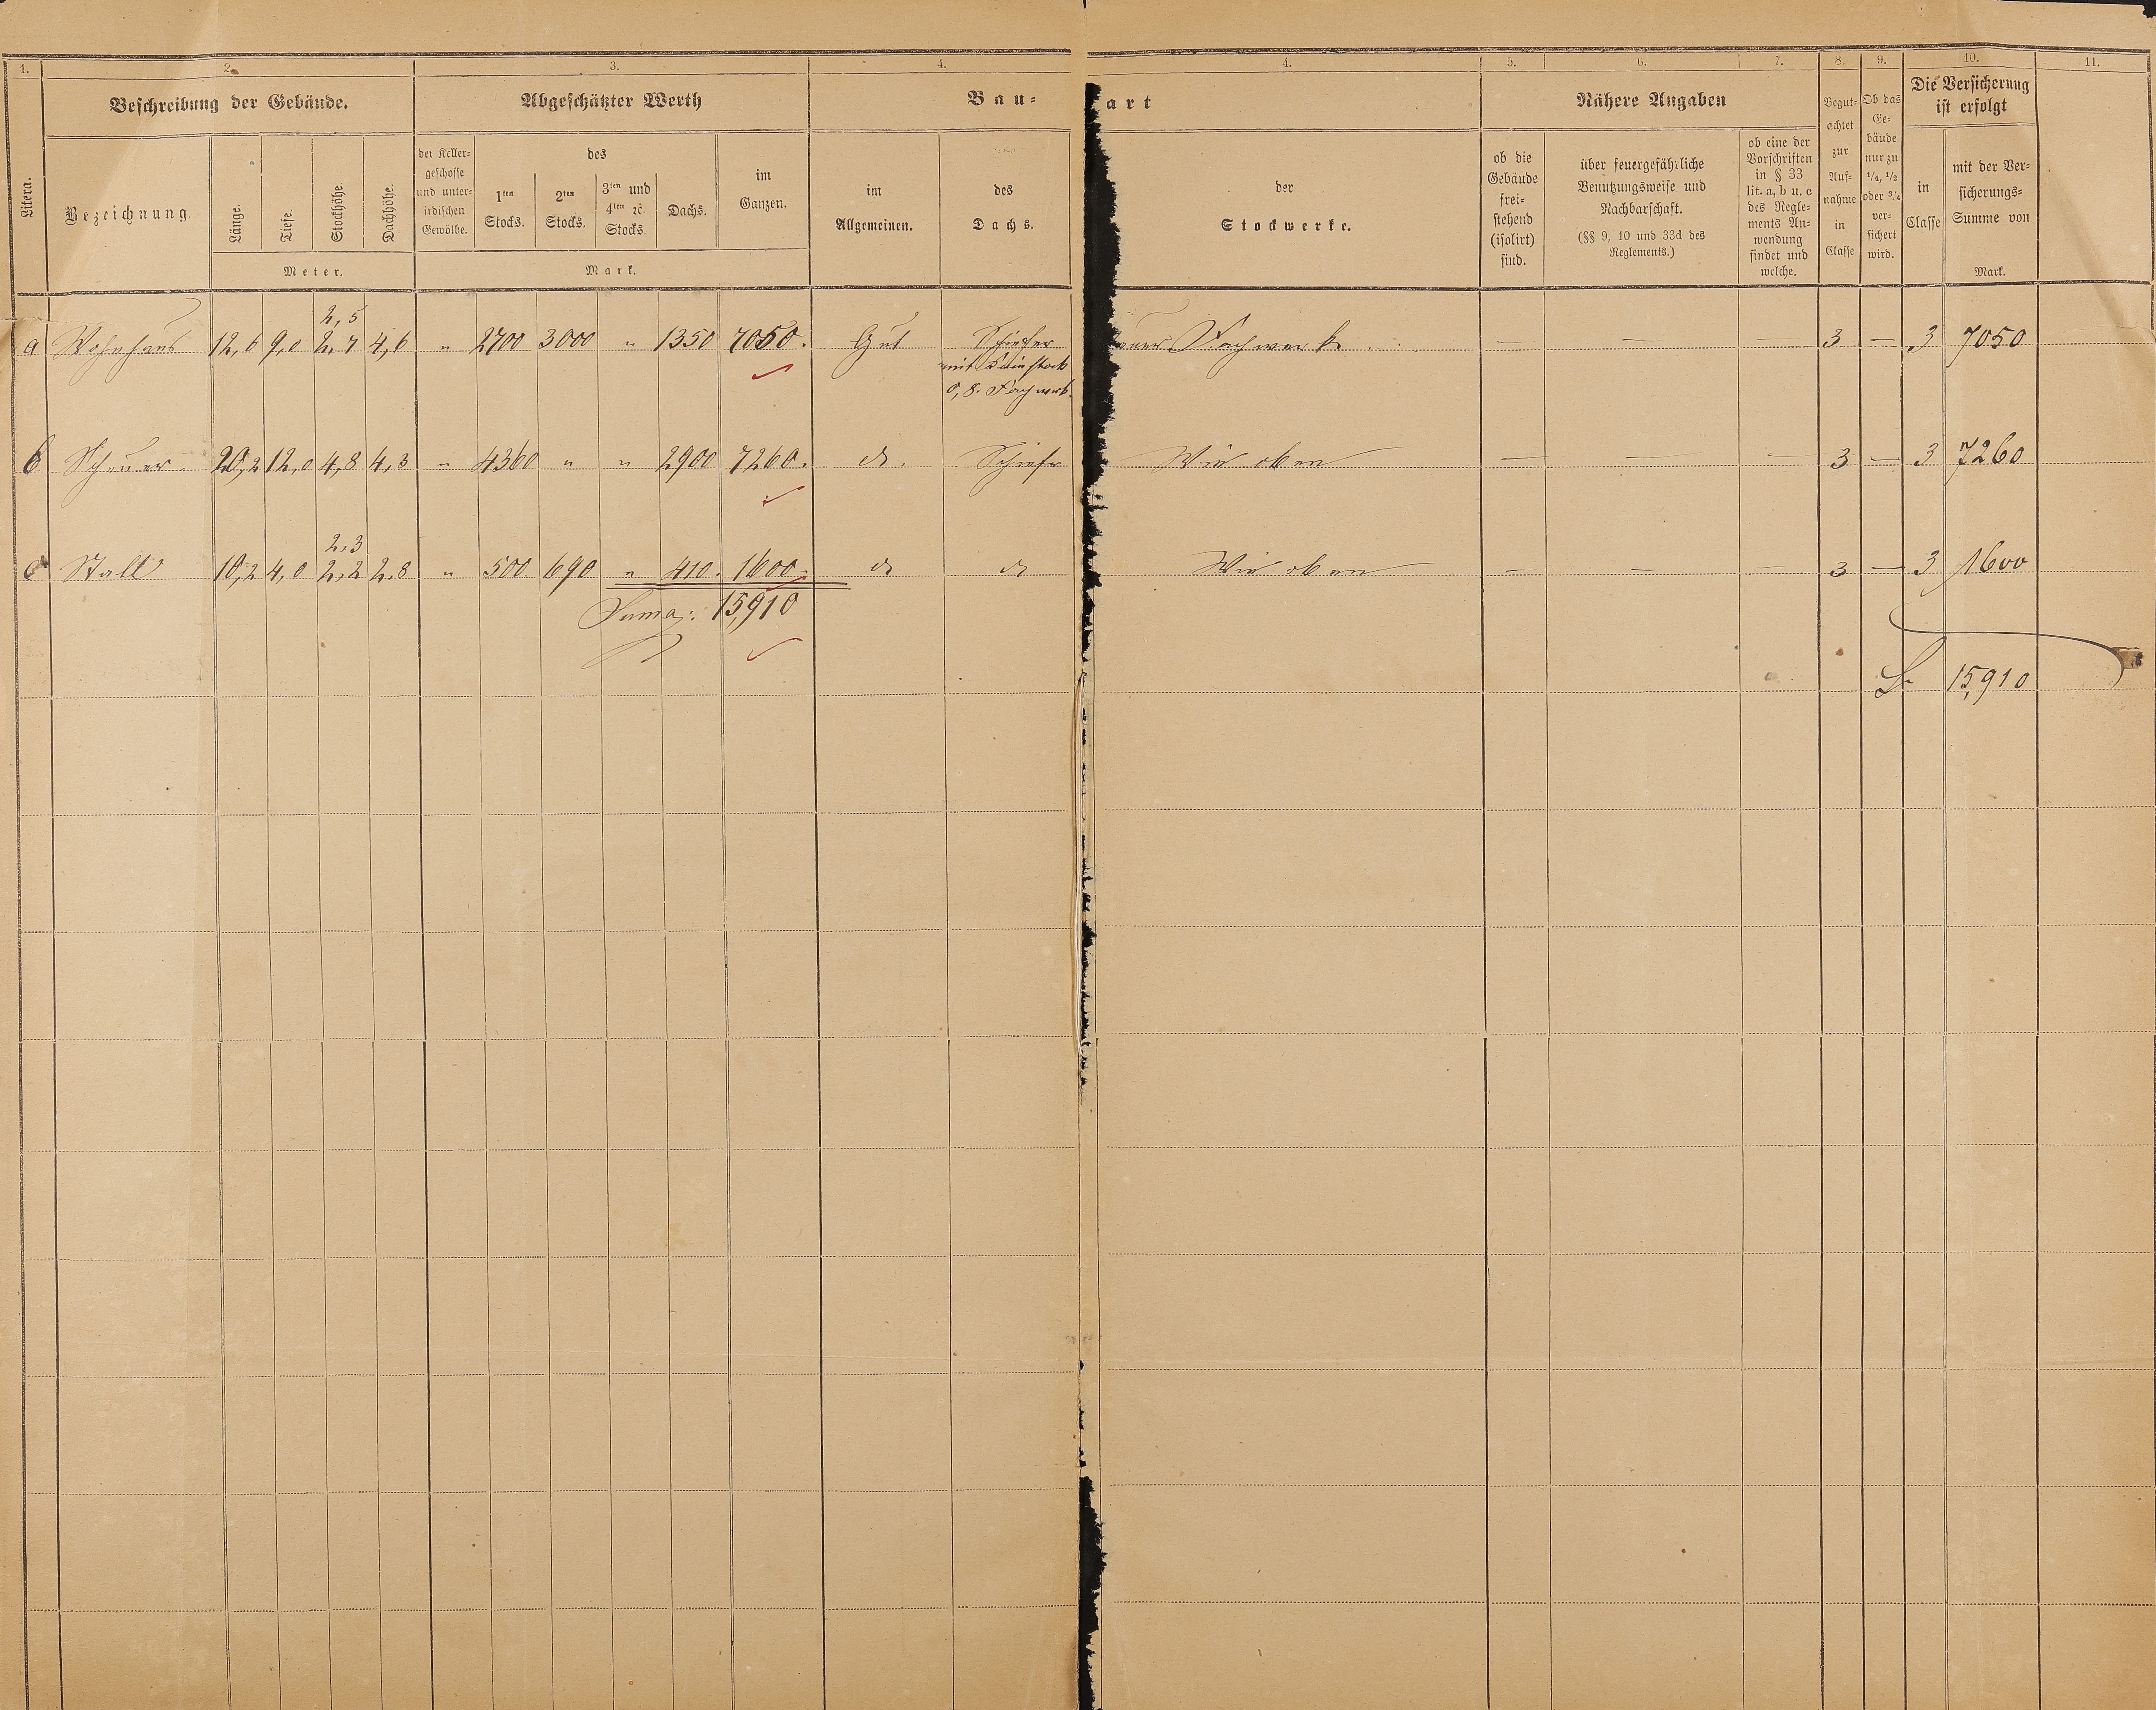 1. 2. 3. 4. 4. 5. 6. 7. 8. 9. 10. 11.
Litera.
Beschreibung der Gebäude.
Bezeichnung.
Länge. Tiefe. Stockhöhe. Dachhöhe.
Meter.
Abgeschätzter Werth
der Keller-
geschosse
und unter-
irdischen
Gewölbe.
des
1ten
Stocks.
2ten
Stocks.
3ten und
4ten ꝛc.
Stocks.
Dachs.
im
Ganzen.
Mark.
Bau-
art
im
Allgemeinen.
des
Dachs.
der
Stockwerke.
Nähere Angaben
ob die
Gebäude
frei-
stehend
(isolirt)
sind.
über feuergefährliche
Benutzungsweise und
Nachbarschaft.
(§§ 9, 10 und 33d des
Reglements.)
ob eine der
Vorschriften
in § 33
lit. a, b u. c
des Regle-
ments An-
wendung
findet und
welche.
Begut-
achtet
zur
Auf-
nahme
in
Classe
Ob das
Ge-
bäude
nur zu
1/4, 1/2
oder 3/4
ver-
sichert
wird.
Die Versicherung
ist erfolgt
in
Classe
mit der Ver-
sicherungs-
Summe von
Mark.
2,5
a Wohnhaus 12,6 9,0 2,7 4,6 " 2700 3000 " 1350 7050. Gut Schiefer Fachwerk — — — 3 — 3 7050
mit
0,8. Fachwerk.
b Scheuer. 20,2 12,0 4,8 4,3 " 4360 " " 2900 7260. do. Schiefer Wie oben — — — 3 — 3 7260
2,3
c Stall 10,2 4,0 2,2 2,8 " 500 690 " 410. 1600. do do Wie oben — — — 3 — 3 1600
Suma: 15,910
S. 15,910